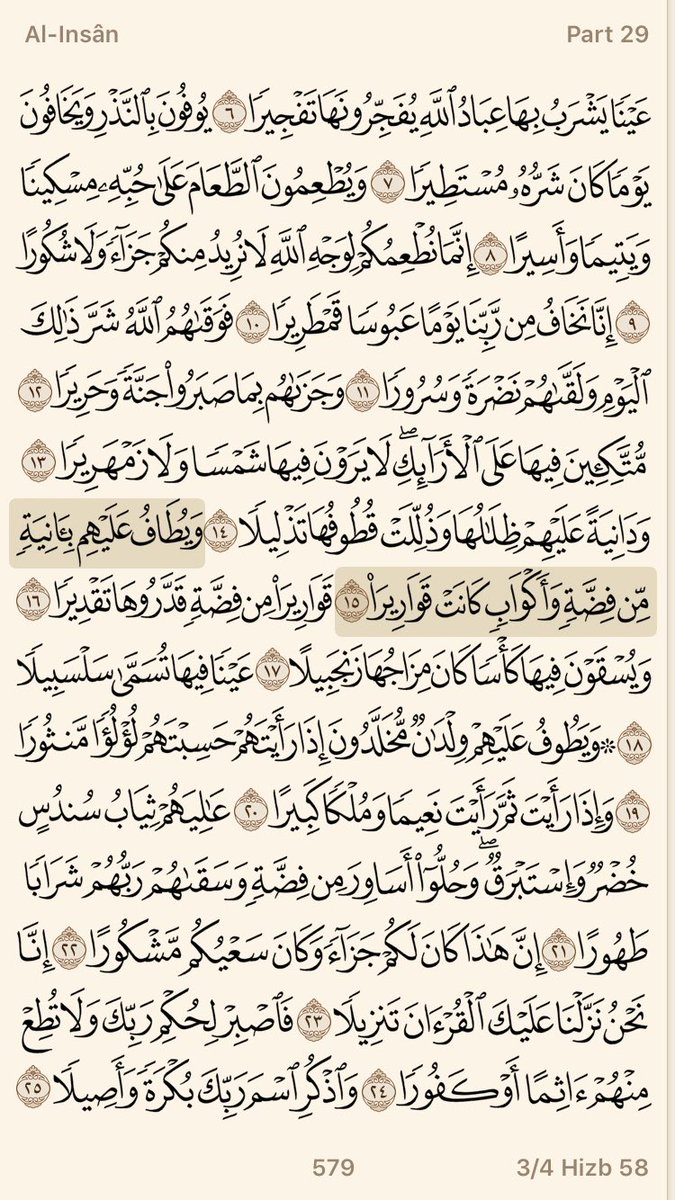 Al-Insân Part 29
عَيۡنٗا يَشۡرَبُ بِهَا عِبَادُ ٱللَّهِ يُفَجِّرُونَهَا تَفۡجِيرٗا ٦ يُوفُونَ بِٱلنَّذۡرِ وَيَخَافُونَ
يَوۡمٗا كَانَ شَرُّهُۥ مُسۡتَطِيرٗا ٧ وَيُطۡعِمُونَ ٱلطَّعَامَ عَلَىٰ حُبِّهِۦ مِسۡكِينٗا
وَيَتِيمٗا وَأَسِيرًا ٨ إِنَّمَا نُطۡعِمُكُمۡ لِوَجۡهِ ٱللَّهِ لَا نُرِيدُ مِنكُمۡ جَزَآءٗ وَلَا شُكُورًا
٩ إِنَّا نَخَافُ مِن رَّبِّنَا يَوۡمًا عَبُوسٗا قَمۡطَرِيرٗا ١٠ فَوَقَىٰهُمُ ٱللَّهُ شَرَّ ذَٰلِكَ
ٱلۡيَوۡمِ وَلَقَّىٰهُمۡ نَضۡرَةٗ وَسُرُورٗا ١١ وَجَزَىٰهُم بِمَا صَبَرُواْ جَنَّةٗ وَحَرِيرٗا ١٢
مُّتَّكِـِٔينَ فِيهَا عَلَى ٱلۡأَرَآئِكِۖ لَا يَرَوۡنَ فِيهَا شَمۡسٗا وَلَا زَمۡهَرِيرٗا ١٣
وَدَانِيَةً عَلَيۡهِمۡ ظِلَٰلُهَا وَذُلِّلَتۡ قُطُوفُهَا تَذۡلِيلٗا ١٤ وَيُطَافُ عَلَيۡهِم بِـَٔانِيَةٖ
مِّن فِضَّةٖ وَأَكۡوَابٖ كَانَتۡ قَوَارِيرَا۠ ١٥ قَوَارِيرَاْ مِن فِضَّةٖ قَدَّرُوهَا تَقۡدِيرٗا ١٦
وَيُسۡقَوۡنَ فِيهَا كَأۡسٗا كَانَ مِزَاجُهَا زَنجَبِيلًا ١٧ عَيۡنٗا فِيهَا تُسَمَّىٰ سَلۡسَبِيلٗا
١٨ ۞وَيَطُوفُ عَلَيۡهِمۡ وِلۡدَٰنٞ مُّخَلَّدُونَ إِذَا رَأَيۡتَهُمۡ حَسِبۡتَهُمۡ لُؤۡلُؤٗا مَّنثُورٗا
١٩ وَإِذَا رَأَيۡتَ ثَمَّ رَأَيۡتَ نَعِيمٗا وَمُلۡكٗا كَبِيرًا ٢٠ عَٰلِيَهُمۡ ثِيَابُ سُندُسٍ
خُضۡرٞ وَإِسۡتَبۡرَقٞۖ وَحُلُّوٓاْ أَسَاوِرَ مِن فِضَّةٖ وَسَقَىٰهُمۡ رَبُّهُمۡ شَرَابٗا
طَهُورًا ٢١ إِنَّ هَٰذَا كَانَ لَكُمۡ جَزَآءٗ وَكَانَ سَعۡيُكُم مَّشۡكُورًا ٢٢ إِنَّا
نَحۡنُ نَزَّلۡنَا عَلَيۡكَ ٱلۡقُرۡءَانَ تَنزِيلٗا ٢٣ فَٱصۡبِرۡ لِحُكۡمِ رَبِّكَ وَلَا تُطِعۡ
مِنۡهُمۡ ءَاثِمًا أَوۡ كَفُورٗا ٢٤ وَٱذۡكُرِ ٱسۡمَ رَبِّكَ بُكۡرَةٗ وَأَصِيلٗا ٢٥
579 3/4 Hizb 58